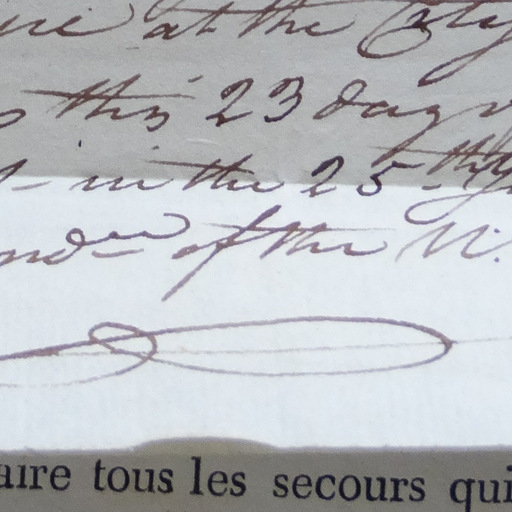 at the City
this 23 day
in the 25th
of the U.
aire tous les secours qui